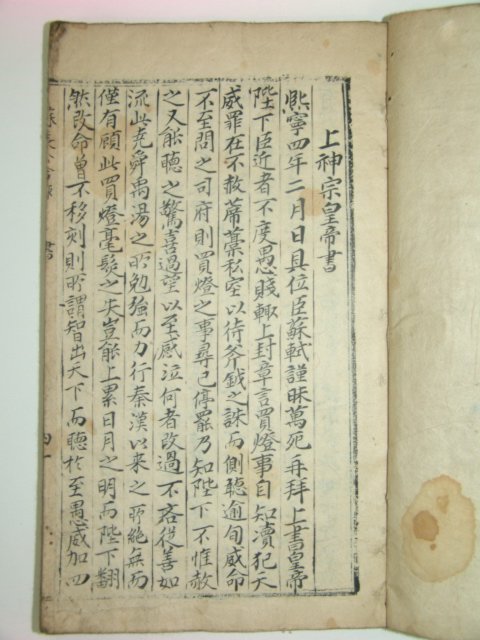 上神宗皇帝書
熙寧四年二月日具位臣蘇軾謹昧萬死再拜上書皇帝
陛下臣近者不度愚賤輒上封章言買燈事自知瀆犯天
威罪在不赦蓆藁私室以待斧鉞之誅而側聽逾旬威命
不至問之司府則買燈之事尋已停罷乃知陛下不惟赦
之又能聽之驚喜過望以至感泣何者改過不吝從善如
流此堯舜禹湯之所勉強而力行秦漢以來之所絶無而
僅有顧此買燈毫髮之失豈能上累日月之明而陛下翻
然改命曾不移刻則所謂智出天下而聽於至愚威加四
書